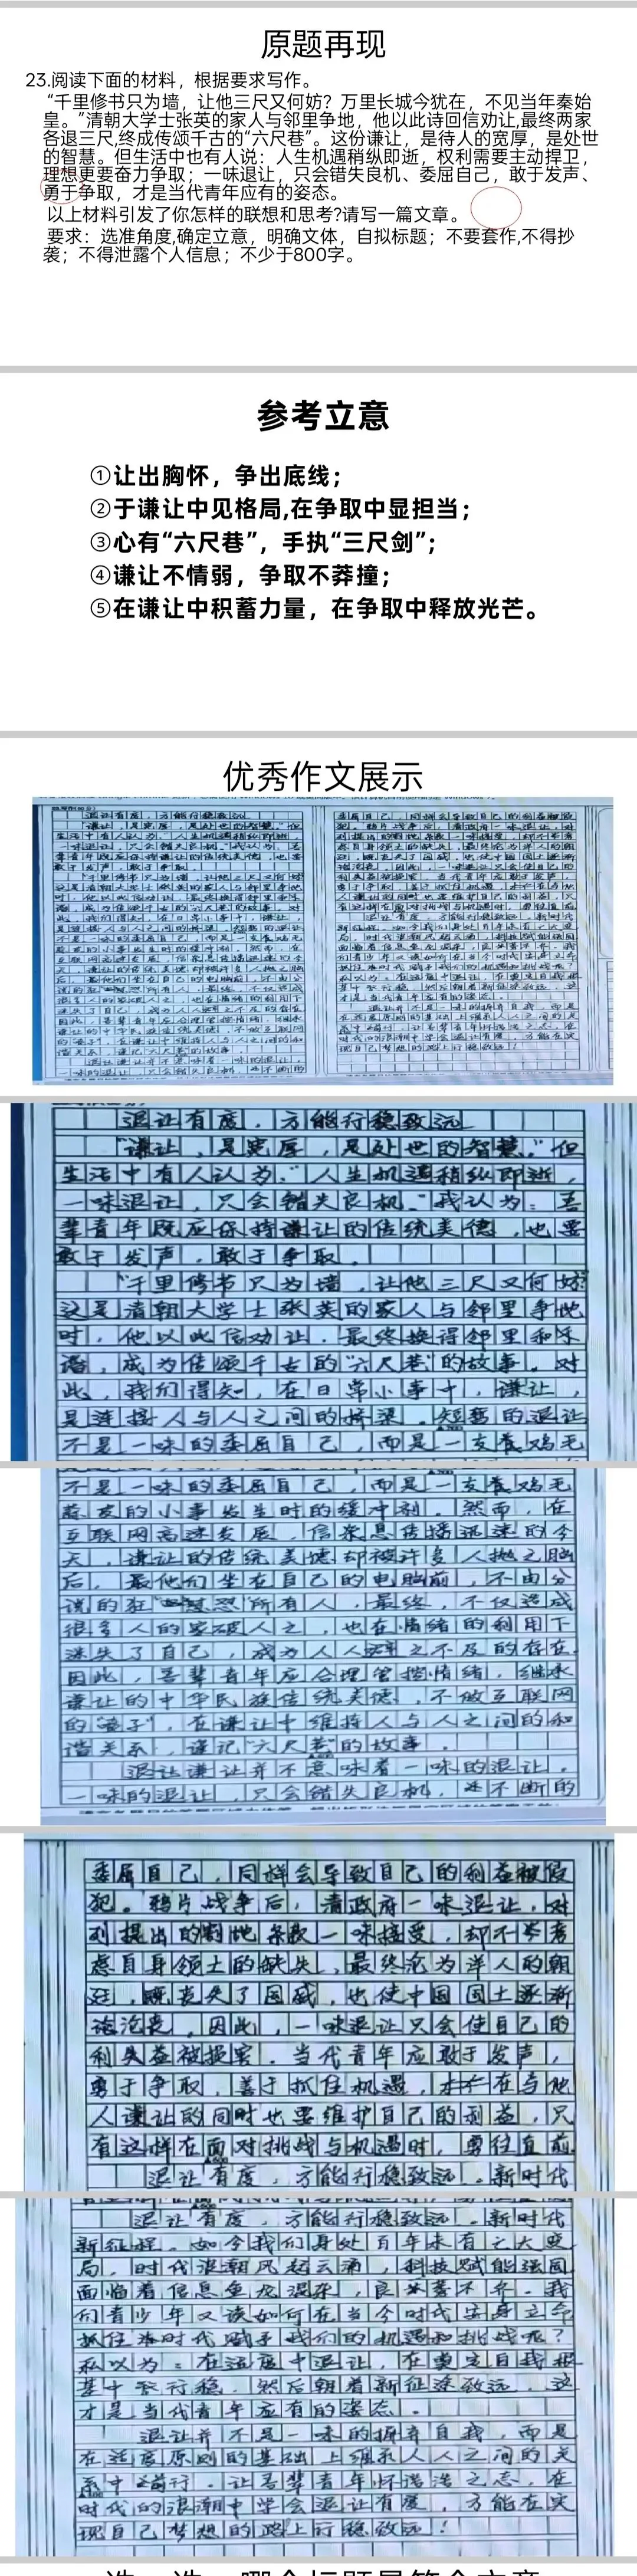 原题再现
23.阅读下面的材料，根据要求写作。
“千里修书只为墙，让他三尺又何妨？万里长城今犹在，不见当年秦始
皇。”清朝大学士张英的家人与邻里争地，他以此诗回信劝让,最终两家
各退三尺,终成传颂千古的“六尺巷”。这份谦让，是待人的宽厚，是处世
的智慧。但生活中也有人说：人生机遇稍纵即逝，权利需要主动捍卫，
理想更要奋力争取；一味退让，只会错失良机、委屈自己，敢于发声、
勇于争取，才是当代青年应有的姿态。
以上材料引发了你怎样的联想和思考?请写一篇文章。
要求：选准角度,确定立意，明确文体，自拟标题；不要套作,不得抄
袭；不得泄露个人信息；不少于800字。
参考立意
①让出胸怀，争出底线；
②于谦让中见格局,在争取中显担当；
③心有“六尺巷”，手执“三尺剑”；
④谦让不惰弱，争取不莽撞；
⑤在谦让中积蓄力量，在争取中释放光芒。
优秀作文展示
退让有度，方能行稳致远
“谦让，是宽厚，是处世的智慧。”但
生活中有人认为：“人生机遇稍纵即逝，
一味退让，只会错失良机。”我认为：吾
辈青年既应保持谦让的传统美德，也要
敢于发声，敢于争取。
“千里修书只为墙，让他三尺又何妨”
这是清朝大学士张英的家人与邻里争地
时，他以此信劝让，最终换得邻里和乐
谐，成为传颂千古的“六尺巷”的故事。对
此，我们得知，在日常小事中，谦让，
是连接人与人之间的桥梁。短暂的退让
不是一味的委屈自己，而是一支养鸡毛
不是一味的委屈自己，而是一支养鸡毛
蒜皮的小事发生时的缓冲剂。然而，在
互联网高速发展，信息传播迅速的今
天，谦让的传统美德却被许多人抛之脑
后，最他们坐在自己的电脑前，不由分
说的狂“怼”所有人，最终，不仅造成
很多人的家破人亡，也在情绪的利用下
迷失了自己，成为人人避之不及的存在
因此，吾辈青年应合理管控情绪，继承
谦让的中华民族传统美德，不做互联网
的“ 子”，在谦让中维持人与人之间的和
谐关系，谨记“六尺巷”的故事。
退让谦让并不意味着一味的退让，
一味的退让，只会错失良机，在不断的
委屈自己，同样会导致自己的利益被侵
犯。鸦片战争后，清政府一味退让，对
列提出的割地条款一味接受，却不考
虑自身领土的缺失，最终沦为洋人的朝
廷，既丧失了国威，也使中国国土逐渐
沦丧。因此，一味退让只会使自己的
利益被损害。当代青年应敢于发声，
勇于争取，善于抓住机遇，在与他
人谦让的同时也要维护自己的利益，只
有这样在面对挑战与机遇时，勇往直前
退让有度，方能行稳致远。新时代
退让有度，方能行稳致远。新时代
新征程。如今我们身处百年未有之大变
局，时代浪潮风起云涌，科技赋能强国
面临着信息鱼龙混杂，良莠不齐。我
们青少年又该如何在当今时代安身立命
抓住时代赋予我们的机遇和挑战呢？
私以为：在适度中退让，在奠定自我根
基中行稳，然后朝着新征途致远，这
才是当代青年应有的姿态。
退让并不是一味的摒弃自我，而是
在适度原则的基础上维系人人之间的关
系中前行。让吾辈青年怀浩浩之志，在
时代的浪潮中学会退让有度，方能在实
现自己梦想的路上行稳致远！